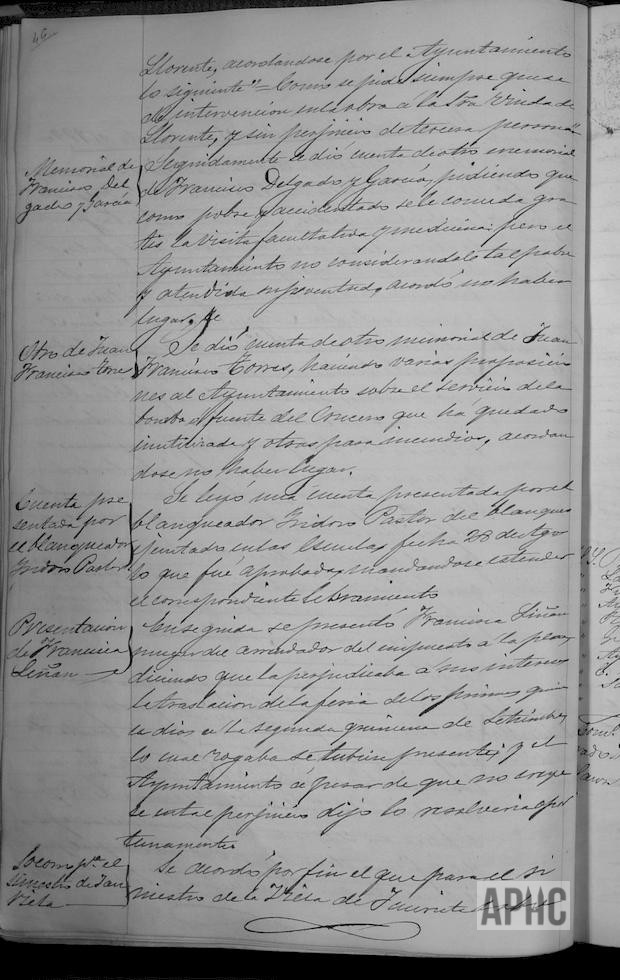 46
Llorente, acordandose por el Ayuntamiento
lo siguiente = Como se pide siempre que se
dé intervencion en la obra a la Sra Viuda de
Llorente, y sin perjuicio de tercera persona
Memorial de
Francisco Del
gado y Garcia
Seguidamente se dió cuenta de otro memorial
de Francisco Delgado y Garcia, pidiendo que
como pobre y accidentado se le conceda gra
tis la visita facultativa y medicina: pero el
Ayuntamiento no considerandolo tal pobre
y atendida su juventud, acordó no haber
lugar.
Otro de Juan
Francisco Torre
Se dió cuenta de otro memorial de Juan
Francisco Torres, haciendo varias proposicio
nes al Ayuntamiento sobre el servicio de la
bomba fuente del Crucero que há quedado
inutilizada y otras para incendios, acordan
dose no haber lugar.
Cuenta pre
sentada por
el blanqueador
Isidoro Pastor
Se leyó una cuenta presentada por el
blanqueador Isidoro Pastor del blanqueo
ejecutado en las Escuelas, fecha 28 de Agos
to que fue aprobada, mandandose estender
el correspondiente libramiento
Presentacion
de Francisca
Liñan
Enseguida se presentó Francisca Liñan
muger del arrendador del impuesto a la plaza
diciendo que la perjudicaba a sus intereses
la traslacion de la feria de los primeros quin
ce dias a la segunda quincena de Setiembre,
lo cual rogaba se tubiese presente; y el
Ayuntamiento á pesar de que no creye
se en tal perjuicio dijo lo resolveria opor
tunamente.
Socorro pa. el
siniestro de
Viela
Se acordó por fin el que para el si
niestro de la Viela de
APHC